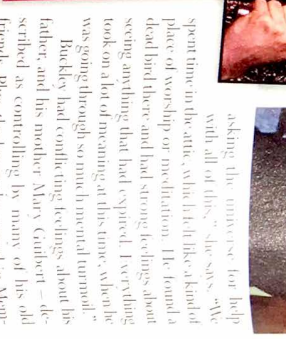 asking the universe for help
with all of this," she says. "We
spent time in the attic which felt like a kind of
place of worship or meditation. He found a
dead bird there and had strong feelings about
seeing anything that had expired. Everything
took on a lot of meaning at the time when he
was going through so much mental turmoil."
Buckley had conflicting feelings about his
father, and his mother Mary Guibert – de-
scribed as controlling by many of his old
friends.